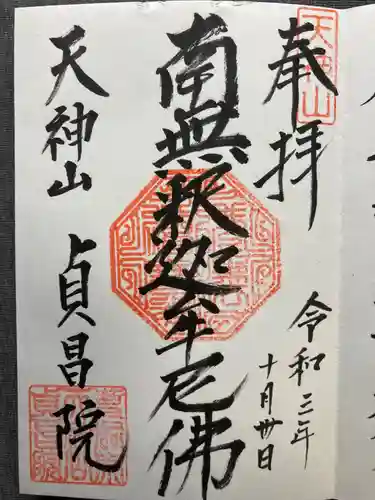 奉拝
天神山
令和三年
十月卅日
南無釈迦牟尼佛
天神山
貞昌院